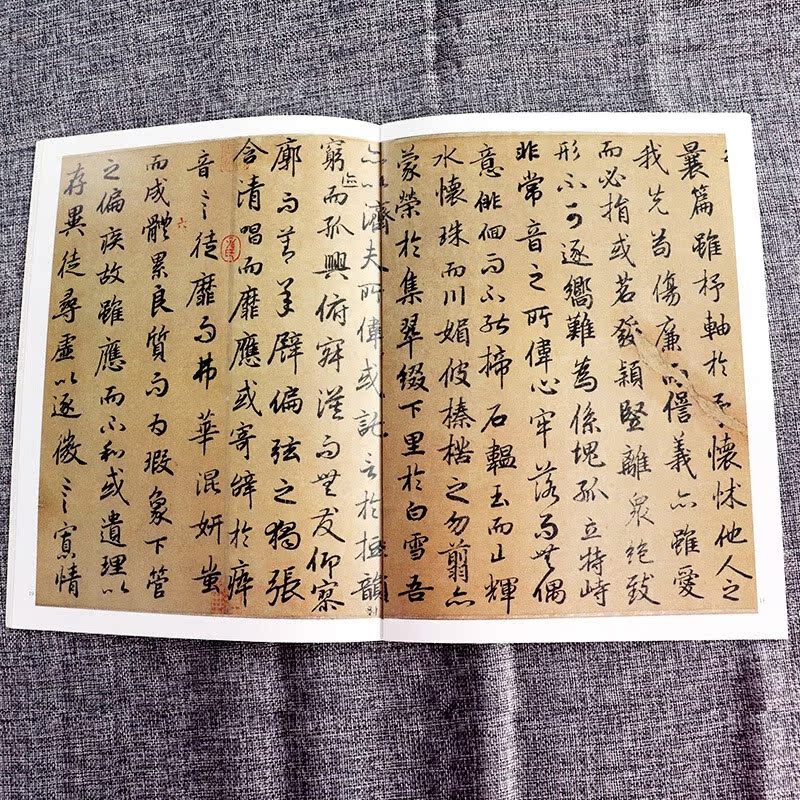 曩篇雖杼軸於予懷怵他人之
我先苟傷廉而愆義亦雖愛
而必捐或苕發穎豎離衆絕致
形不可逐嚮難為係塊孤立特峙
非常音之所偉心牢落而無偶
意徘徊而不能揥石韞玉而山輝
水懷珠而川媚彼榛楛之勿翦亦
蒙榮於集翠綴下里於白雪吾
亦以濟夫所偉或託言於短韻
窮迹而孤興俯寂漠而無友仰寥
廓而莫承譬偏弦之獨張
含清唱而靡應或寄辭於瘁
音言徒靡而弗華混妍蚩
而成體累良質而為瑕象下管
之偏疾故雖應而不和或遺理以
存異徒尋虛以逐微言寡情